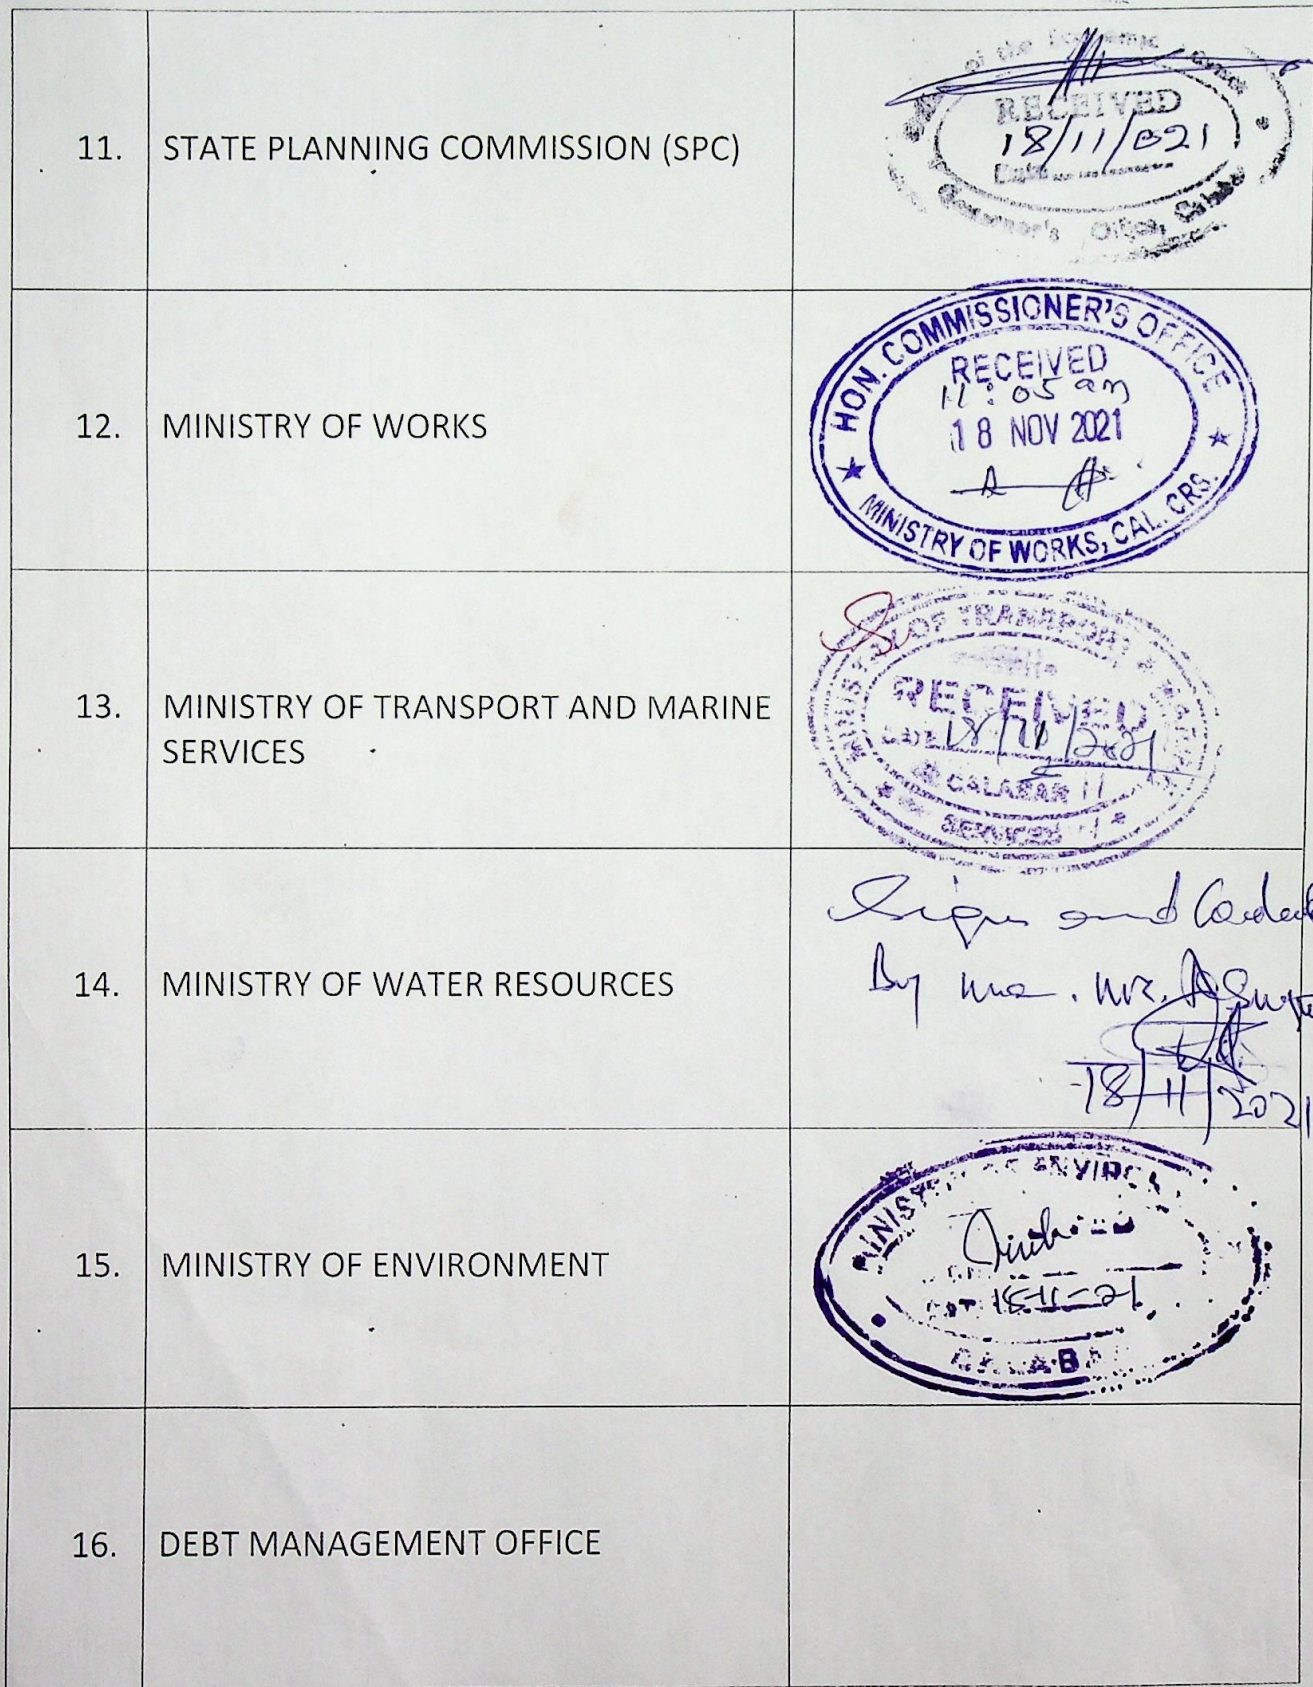 11. STATE PLANNING COMMISSION (SPC)
of the Economic
RECEIVED
18/11/2021
Date
Governor's Office, Calabar
12. MINISTRY OF WORKS
HON. COMMISSIONER'S OFFICE
RECEIVED
11:05 am
18 NOV 2021
MINISTRY OF WORKS, CAL. CRS.
13. MINISTRY OF TRANSPORT AND MARINE
SERVICES
MINISTRY OF TRANSPORT & MARINE
RECEIVED
18/11/2021
CALABAR
SERVICES
14. MINISTRY OF WATER RESOURCES
Sign and
By me. Mr.
18/11/2021
15. MINISTRY OF ENVIRONMENT
MINISTRY OF ENVIRO
18-11-21
CALABA
16. DEBT MANAGEMENT OFFICE